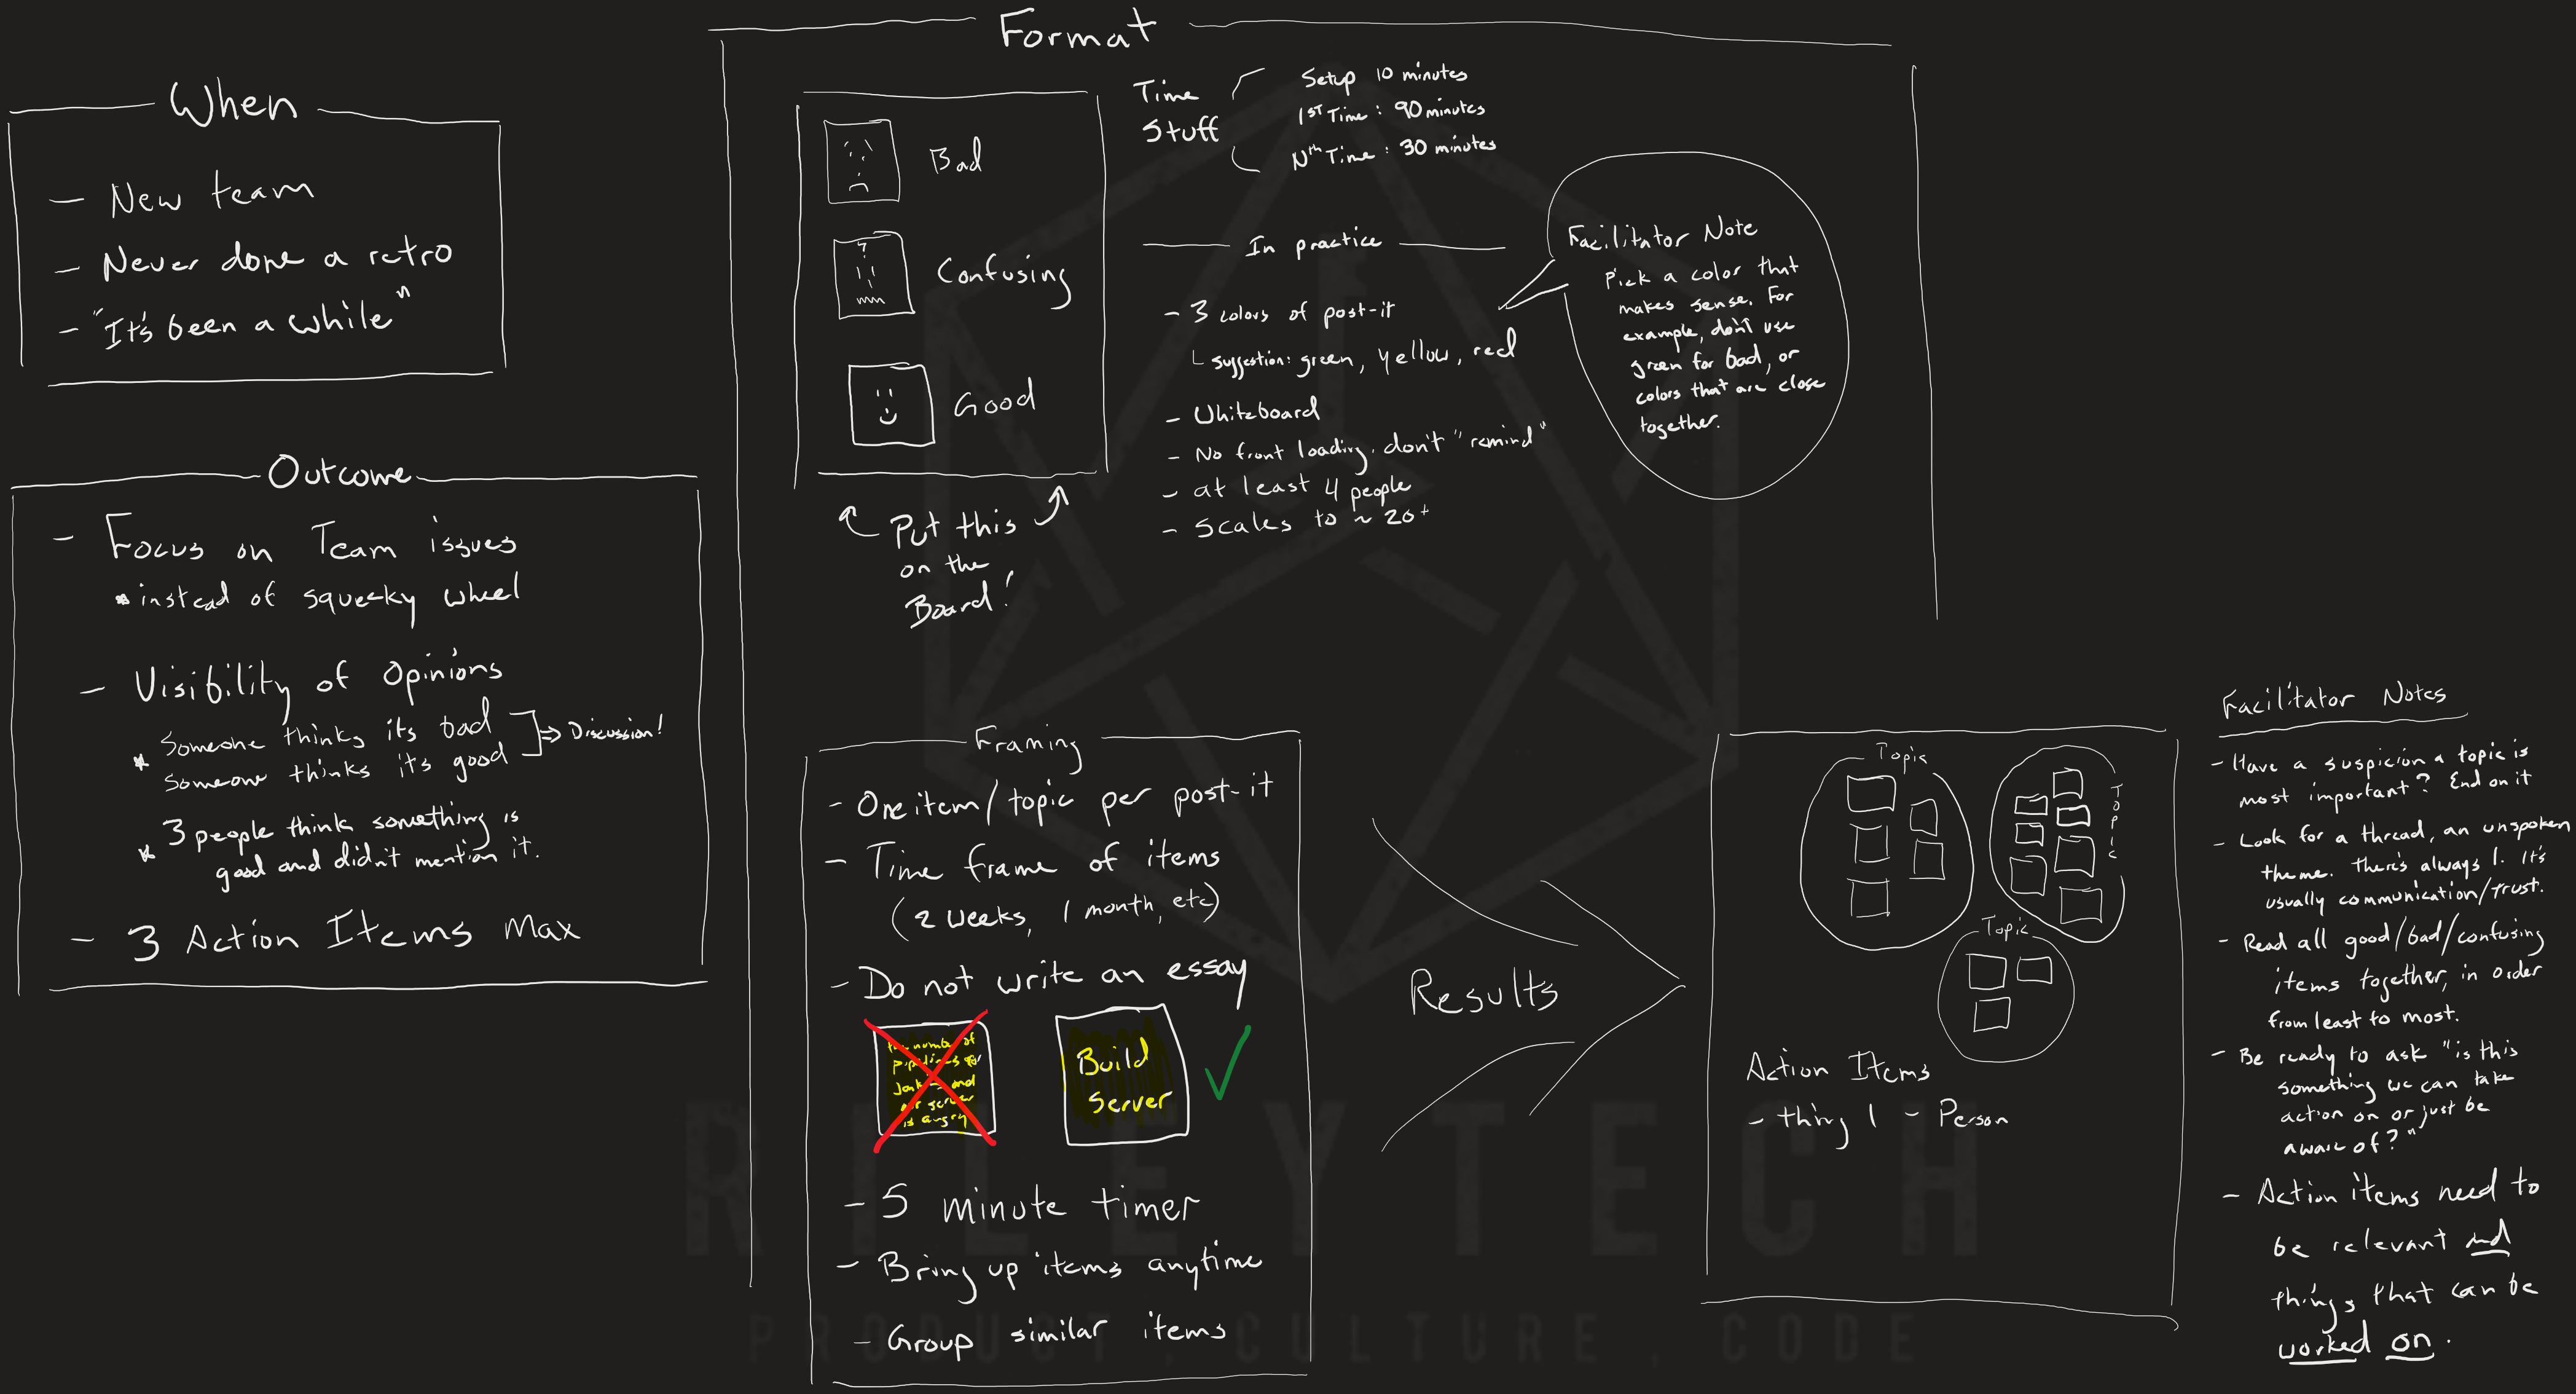 When
- New team
- Never done a retro
- "It's been a while"
Outcome
- Focus on Team issues
* instead of squeeky wheel
- Visibility of Opinions
* Someone thinks its bad
someone thinks it's good
⇒ Discussion!
* 3 people think something is
good and didn't mention it.
- 3 Action Items Max
Format
Bad
? Confusing
Good
Put this
on the
Board!
Time
Stuff
Setup 10 minutes
1ST Time : 90 minutes
Nth Time : 30 minutes
In practice
- 3 colors of post-it
suggestion: green, yellow, red
- Whiteboard
- No front loading. don't "remind"
- at least 4 people
- Scales to ~ 20+
Facilitator Note
Pick a color that
makes sense. For
example, don't use
green for bad, or
colors that are close
together.
Framing
- One item/topic per post-it
- Time frame of items
(2 weeks, 1 month, etc)
- Do not write an essay
number of
and
our server
is angry
Build
Server
- 5 minute timer
- Bring up items anytime
- Group similar items
Results
Topic
Topic
Topic
Action Items
- thing 1 - Person
Facilitator Notes
- Have a suspicion a topic is
most important? End on it
- Look for a thread, an unspoken
theme. there's always 1. It's
usually communication/trust.
- Read all good/bad/confusing
items together, in order
from least to most.
- Be ready to ask "is this
something we can take
action on or just be
aware of?"
- Action items need to
be relevant and
things that can be
worked on.
RILEYTECH
PRODUCT, CULTURE, CODE